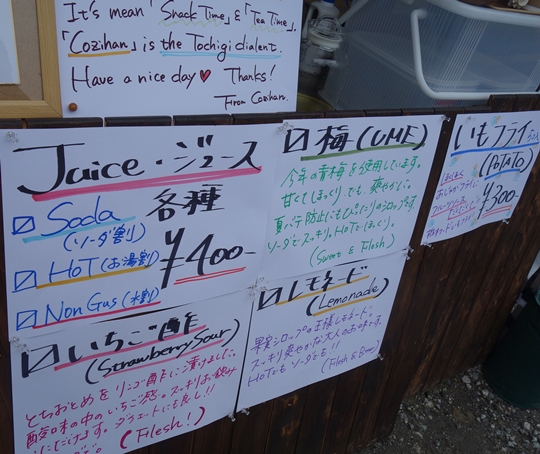 It's mean「Snack Time」&「Tea Time」.
「Cozihan」is the Tochigi dialent.
Have a nice day♥ Thanks!
From Cozihan.
Juice・ジュース
各種
Soda
(ソーダ割)
HoT (お湯割)
Non Gas (水割)
¥400-
梅 (UME)
今年の青梅を使用しています。
甘くてほっくり、でも爽やかに。
夏バテ防止にもぴったりのシロップです。
ソーダでスッキリ。HoTでほっくり。
(Sweet & Flesh)
いもフライ
(PoTATo)
¥300-
いちご酢
(Strawberry Sour)
とちおとめをリンゴ酢に漬けました。
酸味の中のいちご感。スッキリお飲み
いただけます。ダイエットにも良し!!
(Flesh!)
レモネード
(Lemonade)
果実シロップの王様レモネード。
スッキリ爽やかな大人のお味です。
HoTでもソーダでも!!